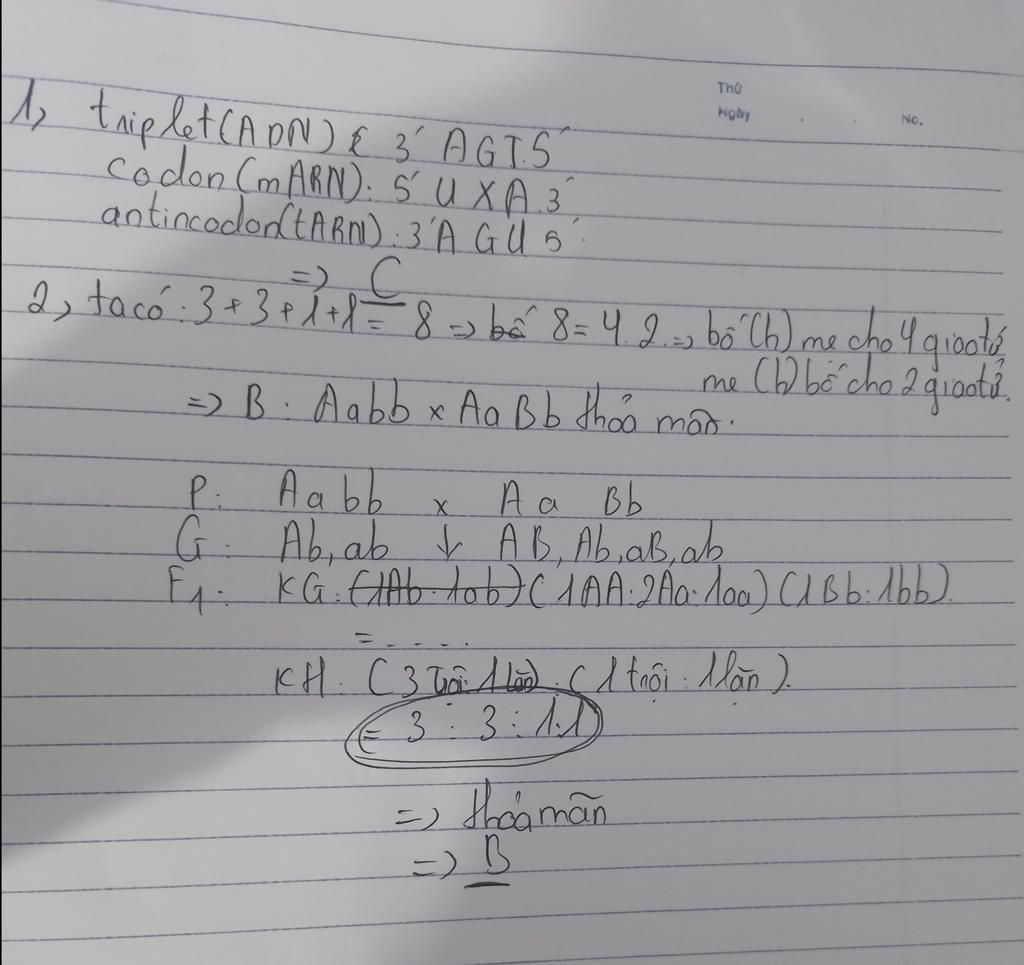 Thứ
Ngày . . No.
1, triplet(ADN) : 3' AGT.5'
codon(mARN): 5' U X A.3'
antincodon(tARN): 3'A G U 5'
=> C
2, ta có: 3+3+1+1 = 8 => bố 8 = 4.2 => bố (h) mẹ cho 4 giao tử
mẹ (h) bố cho 2 giao tử.
=> B. Aabb x AaBb thỏa mãn.
P: Aabb x Aa Bb
G: Ab, ab ↓ AB, Ab, aB, ab
F1: KG: (1Ab. 1ab) (1AA:2Aa:1aa)(1Bb:1bb).
= . . . . .
KH: (3 trội: 1 lặn).(1 trội: 1 lặn).
= 3 : 3 : 1:1
=> thỏa mãn
=> B